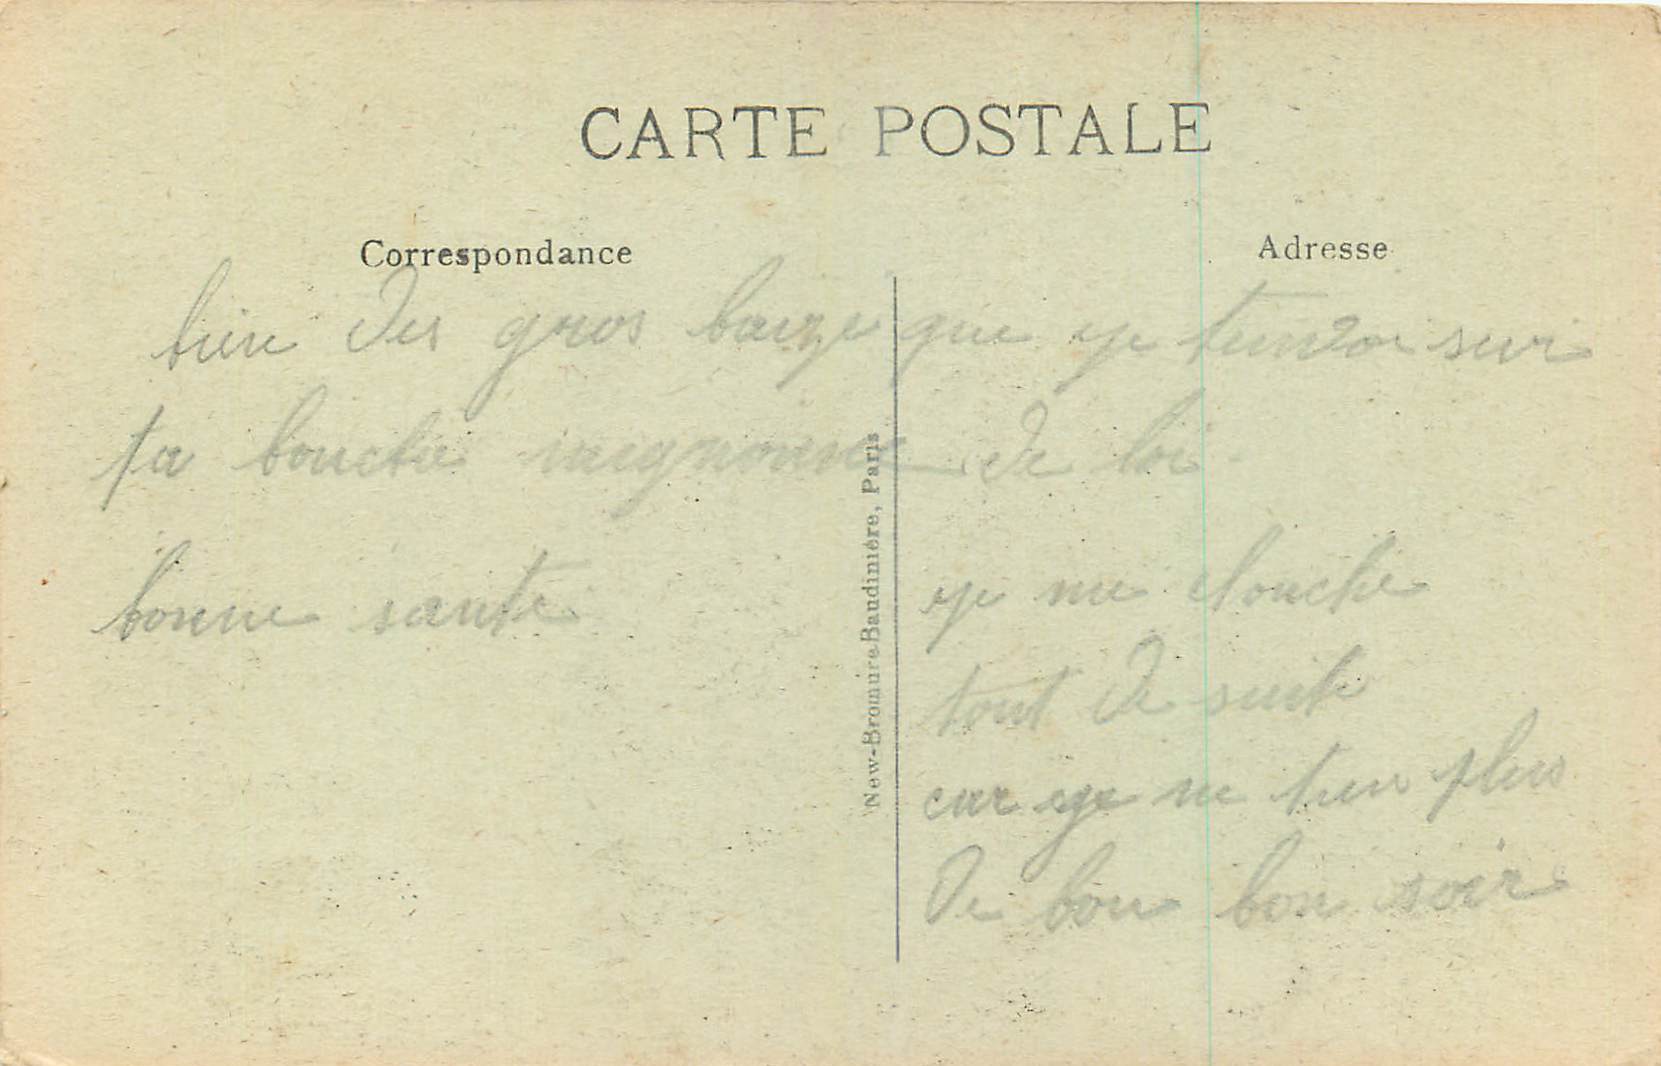 CARTE POSTALE
Correspondance
Adresse
bien des gros baize que je tenvoi sur
ta bouche mignonne de loi
bonne sante
New-Bromure Baudinière, Paris
je me couche
tout de suite
car je ne tien plus
De bou bon soir